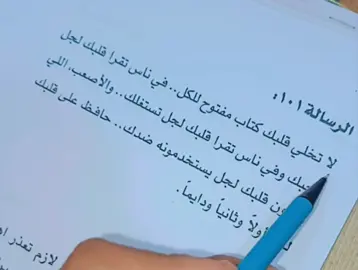 الرسالة ١٠١:
لا تخلي قلبك كتاب مفتوح للكل.. في ناس تقرا قلبك لجل
وفي ناس تقرا قلبك لجل تستغلك.. والأصعب، اللي
قلبك لجل يستخدمونه ضدك.. حافظ على قلبك
وثانياً ودايماً.
لازم تعذر